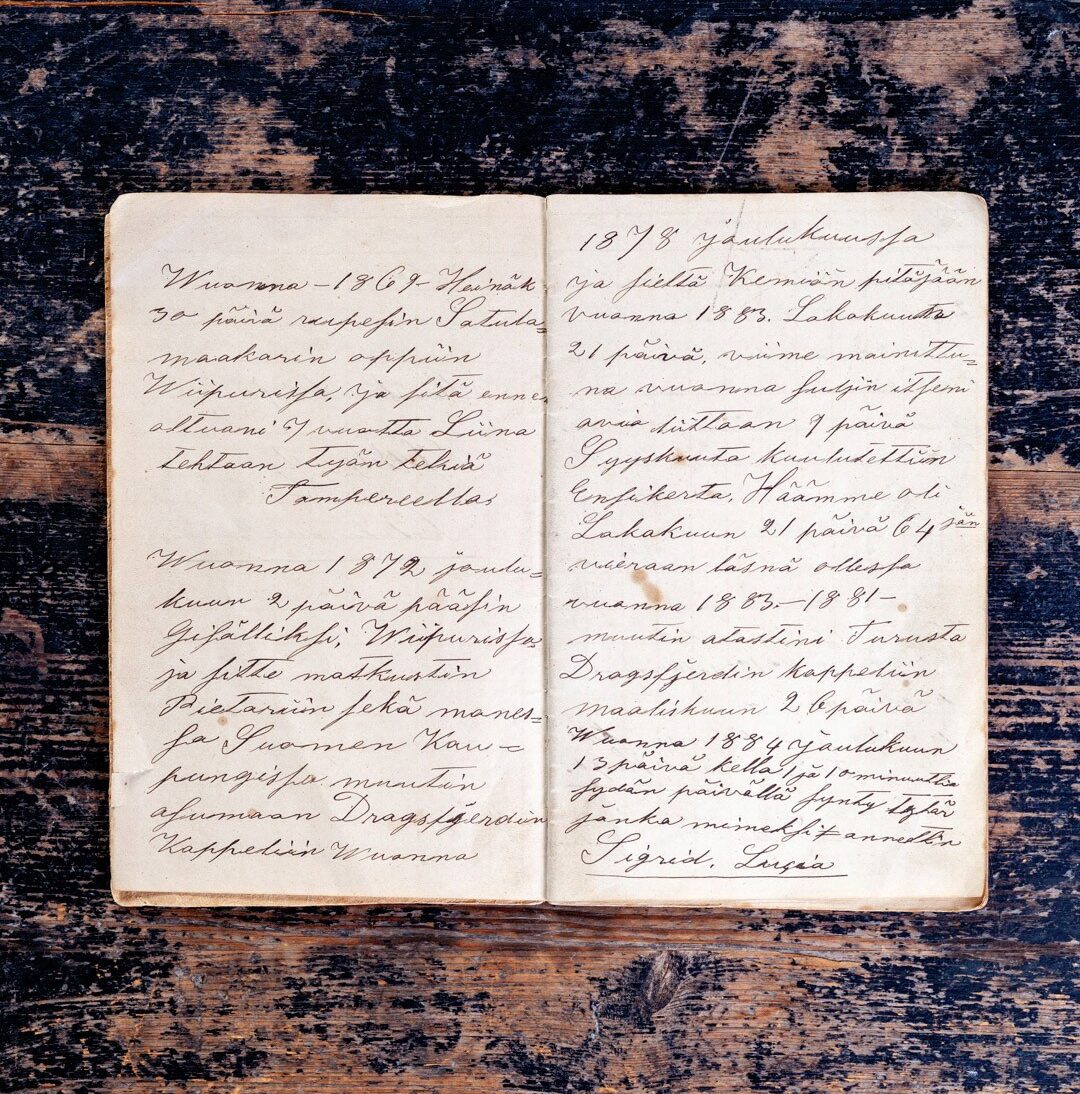 Wuonna – 1869 – Heinäk
30 päivä rupesin Satula-
maakarin oppiin
Wiipurissa, ja sitä enne
oltuani 7 vuotta Liina
tehtaan työn tekiä
Tampereella.
Wuonna 1872 joulu-
kuun 2 päivä pääsin
Gisälliksi; Wiipurissa
ja sitte matkustin
Pietariin sekä mones-
sa Suomen Kau-
pungissa muutin
asumaan Dragsfjerdin
Kappeliin Wuonna
1878 joulukuussa
ja sieltä Kemiön pitäjään
vuonna 1883. Lokakuuta
21 päivä, viime mainittu-
na vuonna suljin itseni
avio liittoon 9 päivä
Syyskuuta kuulutettiin
Ensikerta, Häämme oli
Lokakuun 21 päivä 64 jän
vieraan läsnä ollessa
vuonna 1883.–1881–
muutin alastini Turusta
Dragsfjerdin kappeliin
maaliskuun 26 päivä
Wuonna 1884 joulukuun
13 päivä kella 1 ja 10 minuuttia
sydän päivällä synty tytär
jonka nimeksi annettiin
Sigrid. Lucia